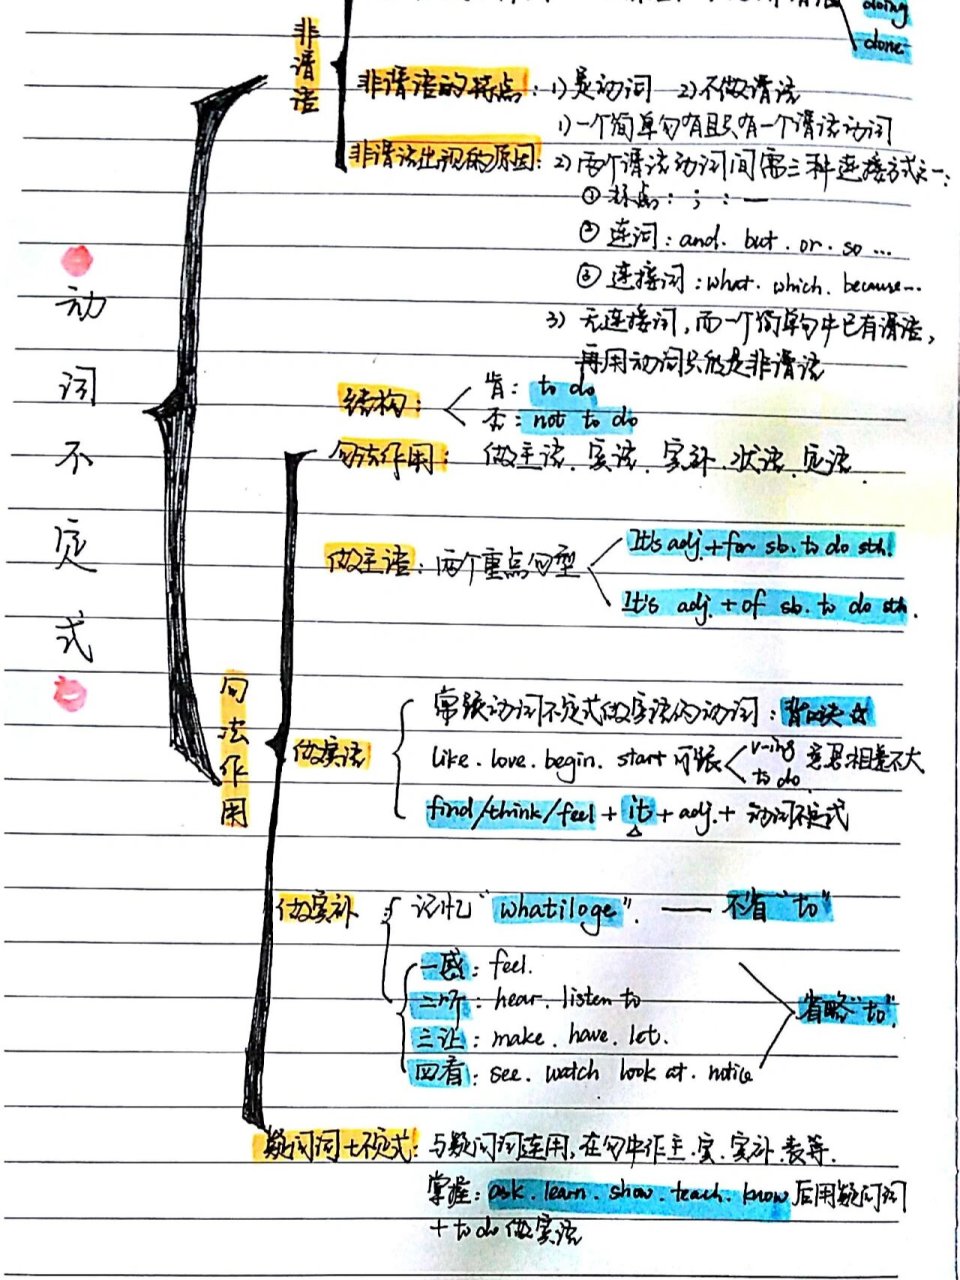 doing
done
非谓语
非谓语的特点：1）是动词 2）不做谓语
1）一个简单句有且只有一个谓语动词
非谓语出现的原因：2）两个谓语动词间需三种连接方式之一：
① 标点：； : —
② 连词：and. but. or. so ...
③ 连接词：what. which. because...
3）无连接词，而一个简单句中已有谓语，
再用动词只能是非谓语
动词不定式
结构：
肯：to do
否：not to do
句法作用：做主语、宾语、宾补、状语、定语.
做主语：两个重点句型
It's adj.+for sb. to do sth.
It's adj.+of sb. to do sth.
句法作用
常跟动词不定式做宾语的动词：背
做宾语
like. love. begin. start 可跟
v-ing
to do
意思相差不大
find/think/feel + it + adj. + 动词不定式
做宾补
记忆"whatiloge". —— 不省"to"
一感：feel.
二听：hear. listen to
三让：make. have. let.
四看：see. watch look at. notice
省略"to".
疑问词+不定式：与疑问词连用，在句中作主.宾.宾补.表等.
掌握：ask. learn. show. teach. know 后用疑问词
+ to do 做宾语